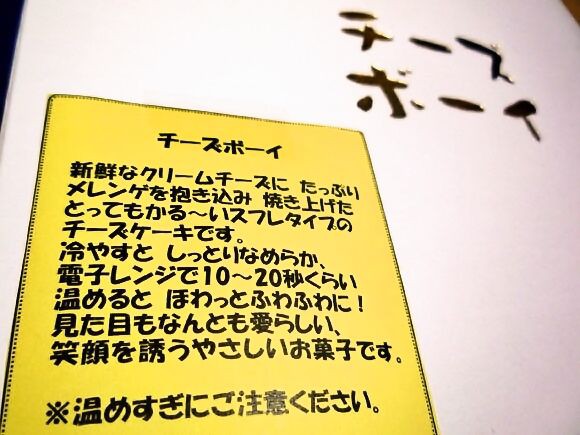 チーズ
ボーイ
チーズボーイ
新鮮なクリームチーズに たっぷり
メレンゲを抱き込み 焼き上げた
とってもかる〜いスフレタイプの
チーズケーキです。
冷やすと しっとりなめらか、
電子レンジで10〜20秒くらい
温めると ほわっとふわふわに！
見た目もなんとも愛らしい、
笑顔を誘うやさしいお菓子です。
※温めすぎにご注意ください。